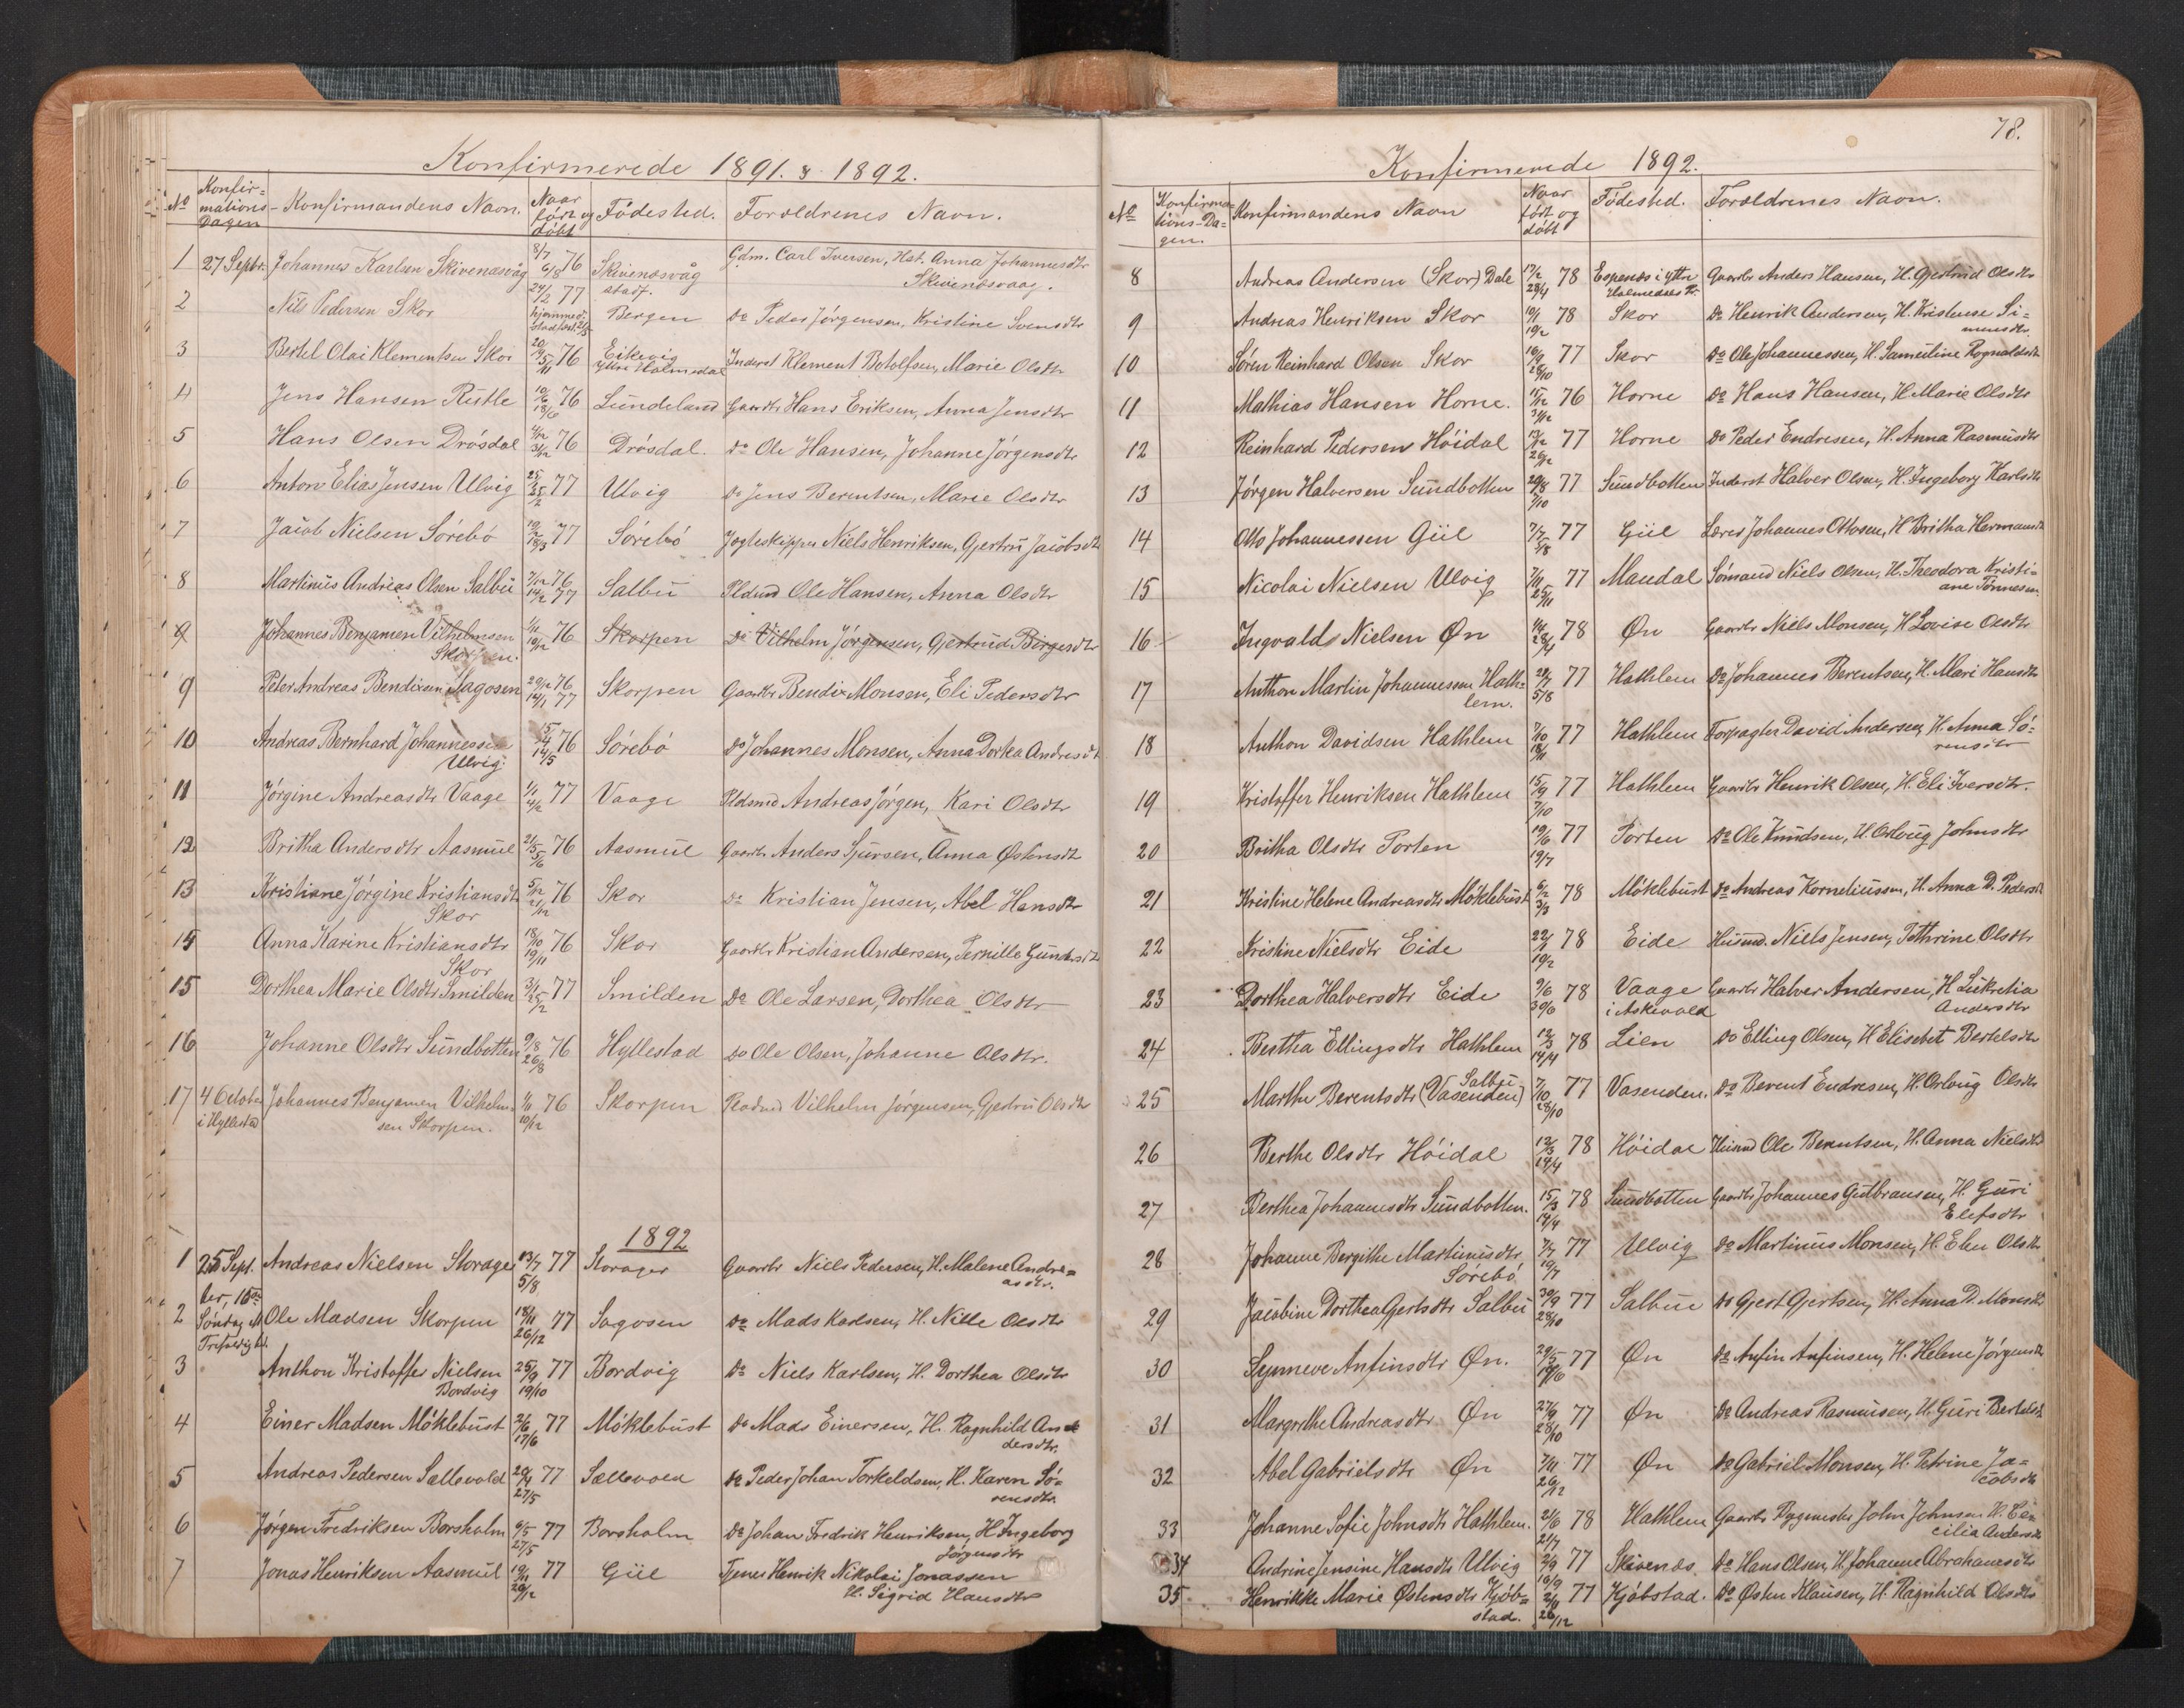 Konfirmerede 1891. & 1892.
No Konfirmations-Dagen Konfirmandens Navn. Naar født og døbt Fødested. Forældrenes Navn.
1 27 Septbr. Johannes Karlsen Skivenæsvåg 8/7 6/8 76 Skivenæsvåg Gdm. Carl Iversen, Hst. Anna Johannesdtr
stadf. Skivenæsvaag.
2 Nils Pedersen Skor 24/2 77 Bergen Do Peder Jørgensen, Kristine Svensdtr
hjemmed.
3 Bertel Olai Klementsen Skor 76 Eikevig Inderst Klement Botolfsen, Marie Olsdtr
Ytre Holmedal
4 Jens Hansen Rutle 76 Lundeland Gaardbr Hans Eriksen, Anna Jensdtr
5 Hans Olsen Drøsdal 76 Drøsdal. Do Ole Hansen, Johanne Jørgensdtr
6 Anton Elias Jensen Ulvig 77 Ulvig Do Jens Berentsen, Marie Olsdtr
7 Jacob Nielsen Sørebø 77 Sørebø Jægteskipper Niels Henriksen, Gjertru Jacobsdtr
8 Martinus Andreas Olsen Salbu 7/12 76 14/2 77 Salbu Pldsmd Ole Hansen, Anna Olsdtr
9 Johannes Benjamen Vilhelmsen 1/11 10/12 76 Skorpen Do Vilhelm Jørgensen, Gjertrud Birgesdtr
Skorpen.
9 Peter Andreas Bendixen Sagosen 29/12 76 14/1 77 Skorpen Gaardbr Bendix Monsen, Eli Pedersdtr
10 Andreas Bernhard Johannessen 15/4 14/5 76 Sørebø Do Johannes Monsen, Anna Dorka Andresdtr
Ulvig.
11 Jørgine Andreasdtr Vaage 1/1 4/2 77 Vaage Pldsmd Andreas Jørgen, Kari Olsdtr
12 Britha Andersdtr Aasmul 21/5 5/6 76 Aasmul Gaardbr Anders Sjursen, Anna Østensdtr
13 Kristiane Jørgine Kristiansdtr 5/12 21/12 76 Skor Do Kristian Jensen, Abel Hansdtr
Skor
14 Anna Karine Kristiansdtr 18/10 19/11 76 Skor Gaardbr Kristian Andersen, Pernille Gundersdtr
Skor
15 Dorthea Marie Olsdtr Smilden 3/1 25/2 77 Smilden Do Ole Larsen, Dorthea Olsdtr
16 Johanne Olsdtr Sundbotten 9/8 26/8 76 Hyllestad Do Ole Olsen, Johanne Olsdtr.
17 4 October Johannes Benjamen Vilhelm- 1/11 10/12 76 Skorpen Pladsmd Vilhelm Jørgensen, Gjertru Olsdtr
i Hyllestad sen Skorpen.
1892
1 25 Sept. Andreas Nielsen Storager 13/7 5/8 77 Storager Gaardbr Niels Pedersen, H. Malene Andre=
ber, 16de asdtr.
2 Søndag e. Ole Madsen Skorpen 18/11 26/12 77 Sagosen Do Mads Karlsen, H. Nille Olsdtr
Trefoldighd.
3 Anthon Kristoffer Nielsen 25/9 19/10 77 Bordvig Do Niels Karlsen, H. Dorthea Olsdtr
Bordvig
4 Einer Madsen Møklebust 2/6 17/6 77 Møklebust Do Mads Einersen, H. Ragnhild An
dersdtr.
5 Andreas Pedersen Sællevold 27/5 77 Sællevold Do Peder Johan Torkeldsen, H. Karen Sø-
rensdtr.
6 Jørgen Fredriksen Borsholm 6/5 27/5 77 Borsholm Do Johan Fredrik Henriksen, H Ingeborg
Jørgensdtr
7 Jonas Henriksen Aasmul 77 Giil Tjener Henrik Nikolai Jonassen
H. Sigrid Hansdtr
78.
Konfirmerede 1892.
No Konfirmations-Dagen. Konfirmandens Navn Naar født og døbt Fødested. Forældrenes Navn.
8 Andreas Andersen (Skor) Dale 17/2 28/4 78 Espenæs i ytre Gaardbr Anders Hansen, H. Gjertrud Olsdtr
Holmedals Pr.
9 Andreas Henriksen Skor 10/1 10/2 78 Skor Do Henrik Andersen, H. Kristense Si=
mensdtr
10 Søren Reinhard Olsen Skor 16/9 28/10 77 Skor Do Ole Johannessen, H. Sameline Rognaldsdtr
11 Mathias Hansen Horne. 15/12 31/12 76 Horne Do Hans Hansen, H. Marie Olsdtr
12 Reinhard Pedersen Høidal 77 Horne Do Peder Endresen, H. Anna Rasmusdtr
13 Jørgen Halversen Sundbotten 77 Sundbotten Inderst Halver Olsen, H. Ingeborg Karlsdtr
14 Otto Johannessen Giil 7/7 5/8 77 Giil Lærer Johannes Ottosen, H Britha Hermansdtr
15 Nicolai Nielsen Ulvig 7/11 25/11 77 Mandal Sømand Niels Olsen, H. Theodora Kristi-
ane Tønnesen.
16 Ingvald Nielsen Øn 78 Øn Gaardbr Niels Monsen, H Lovise Olsdtr
17 Anthon Martin Johannessen Hath- 5/8 77 Hathlem Do Johannes Berentsen, H. Mari Hansdtr
lem.
18 Anthon Davidsen Hathlem 7/10 18/11 77 Hathlem Forpagter David Andersen, H. Anna Sø-
rensdtr
19 Kristoffer Henriksen Hathlem 15/9 7/10 77 Hathlem Gaardbr Henrik Olsen, H. Eli Iversdtr.
20 Britha Olsdtr Porten 19/6 19/7 77 Porten Do Ole Knudsen, H. Orloug Johnsdtr
21 Kristine Helene Andreasdtr Møklebust 6/2 3/3 78 Møklebust Do Andreas Korneliussen, H. Anna D. Pedersdtr
22 Kristine Nielsdtr Eide 22/1 10/2 78 Eide Husmd. Niels Jensen, Tathrine Olsdtr
23 Dorthea Halversdtr Eide 9/6 30/6 78 Vaage Gaardbr Halver Andersen, H Lukretia
i Askevold Andersdtr
24 Bertha Ellingsdtr Hathlem 12/3 14/4 78 Lien Do Elling Olsen, H Elisebet Bertelsdtr
Salbu
25 Marthe Berentsdtr (Vasenden) 7/10 28/10 77 Vasenden. Do Berent Endresen, H. Orloug Olsdtr
26 Berthe Olsdtr Høidal 12/3 14/4 78 Høidal Husmd Ole Berentsen, H. Anna Nielsdtr
27 Berthea Johannesdtr Sundbotten. 15/3 14/4 78 Sundbotten Gaardbr Johannes Gulbransen, H. Guri
Elefsdtr
28 Johanne Bergithe Martinusdtr 7/7 19/7 77 Ulvig Do Martinus Monsen, H. Elen Olsdtr
Sørebø
29 Jacobine Dorthea Gjertsdtr Salbu 30/9 28/10 77 Salbu Do Gjert Gjertsen, H. Anna D. Monsdtr
30 Synneve Anfinsdtr Øn. 77 Øn Do Anfin Anfinsen, H. Helene Jørgensdtr
31 Margrethe Andreasdtr Øn 27/9 28/10 77 Øn Do Andreas Rasmusen, H. Guri Bertelsdtr
32 Abel Gabrielsdtr Øn 7/11 26/12 77 Øn Do Gabriel Monsen, H. Petrine Ja=
cobsdtr
33 Johanne Sofie Johnsdtr Hathlem. 21/6 21/7 78 Hathlem Gaardbr Bygmester John Johnsen H. Ce-
cilia Andersdtr
34 Andrine Jensine Hansdtr Ulvig 2/9 16/9 77 Skivenæs. Do Hans Olsen, H. Johanne Abrahamsdtr
35 Henrikke Marie Østensdtr Kjøb= 26/12 77 Kjøbstad. Do Østen Klausen, H. Ragnhild Olsdtr
stad.